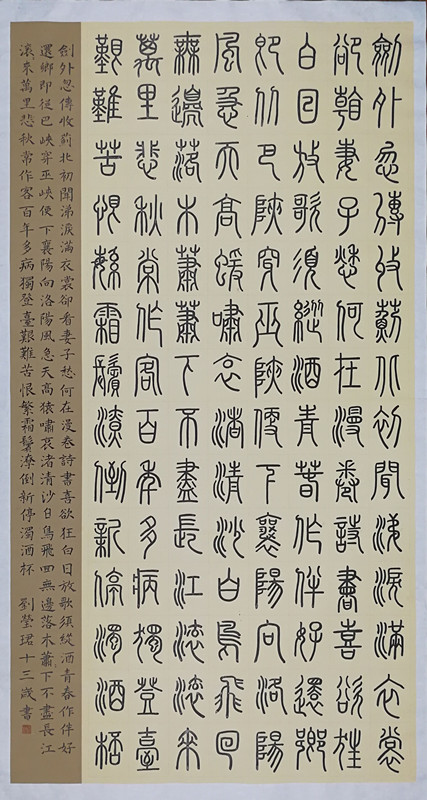 劍外忽傳收薊北初聞涕淚滿衣裳
卻看妻子愁何在漫卷詩書喜欲狂
白日放歌須縱酒青春作伴好還鄉
即從巴峽穿巫峽便下襄陽向洛陽
風急天高猿嘯哀渚清沙白鳥飛回
無邊落木蕭蕭下不盡長江滾滾來
萬里悲秋常作客百年多病獨登臺
艱難苦恨繁霜鬢潦倒新停濁酒杯
劍外忽傳收薊北初聞涕淚滿衣裳卻看妻子愁何在漫卷詩書喜欲狂白日放歌須縱酒青春作伴好
還鄉即從巴峽穿巫峽便下襄陽向洛陽風急天高猿嘯哀渚清沙白鳥飛回無邊落木蕭下不盡長江
滾來萬里悲秋常作客百年多病獨登臺艱難苦恨繁霜鬢潦倒新停濁酒杯 劉瑩珺十三歲書